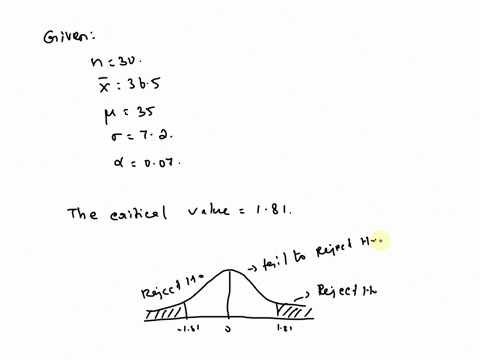 Given:
n = 30.
x̄ = 36.5
μ = 35
σ = 7.2.
α = 0.07.
The critical value = 1.81.
Reject H0
→ fail to Reject H0
→ Reject H0
-1.81 0 1.81